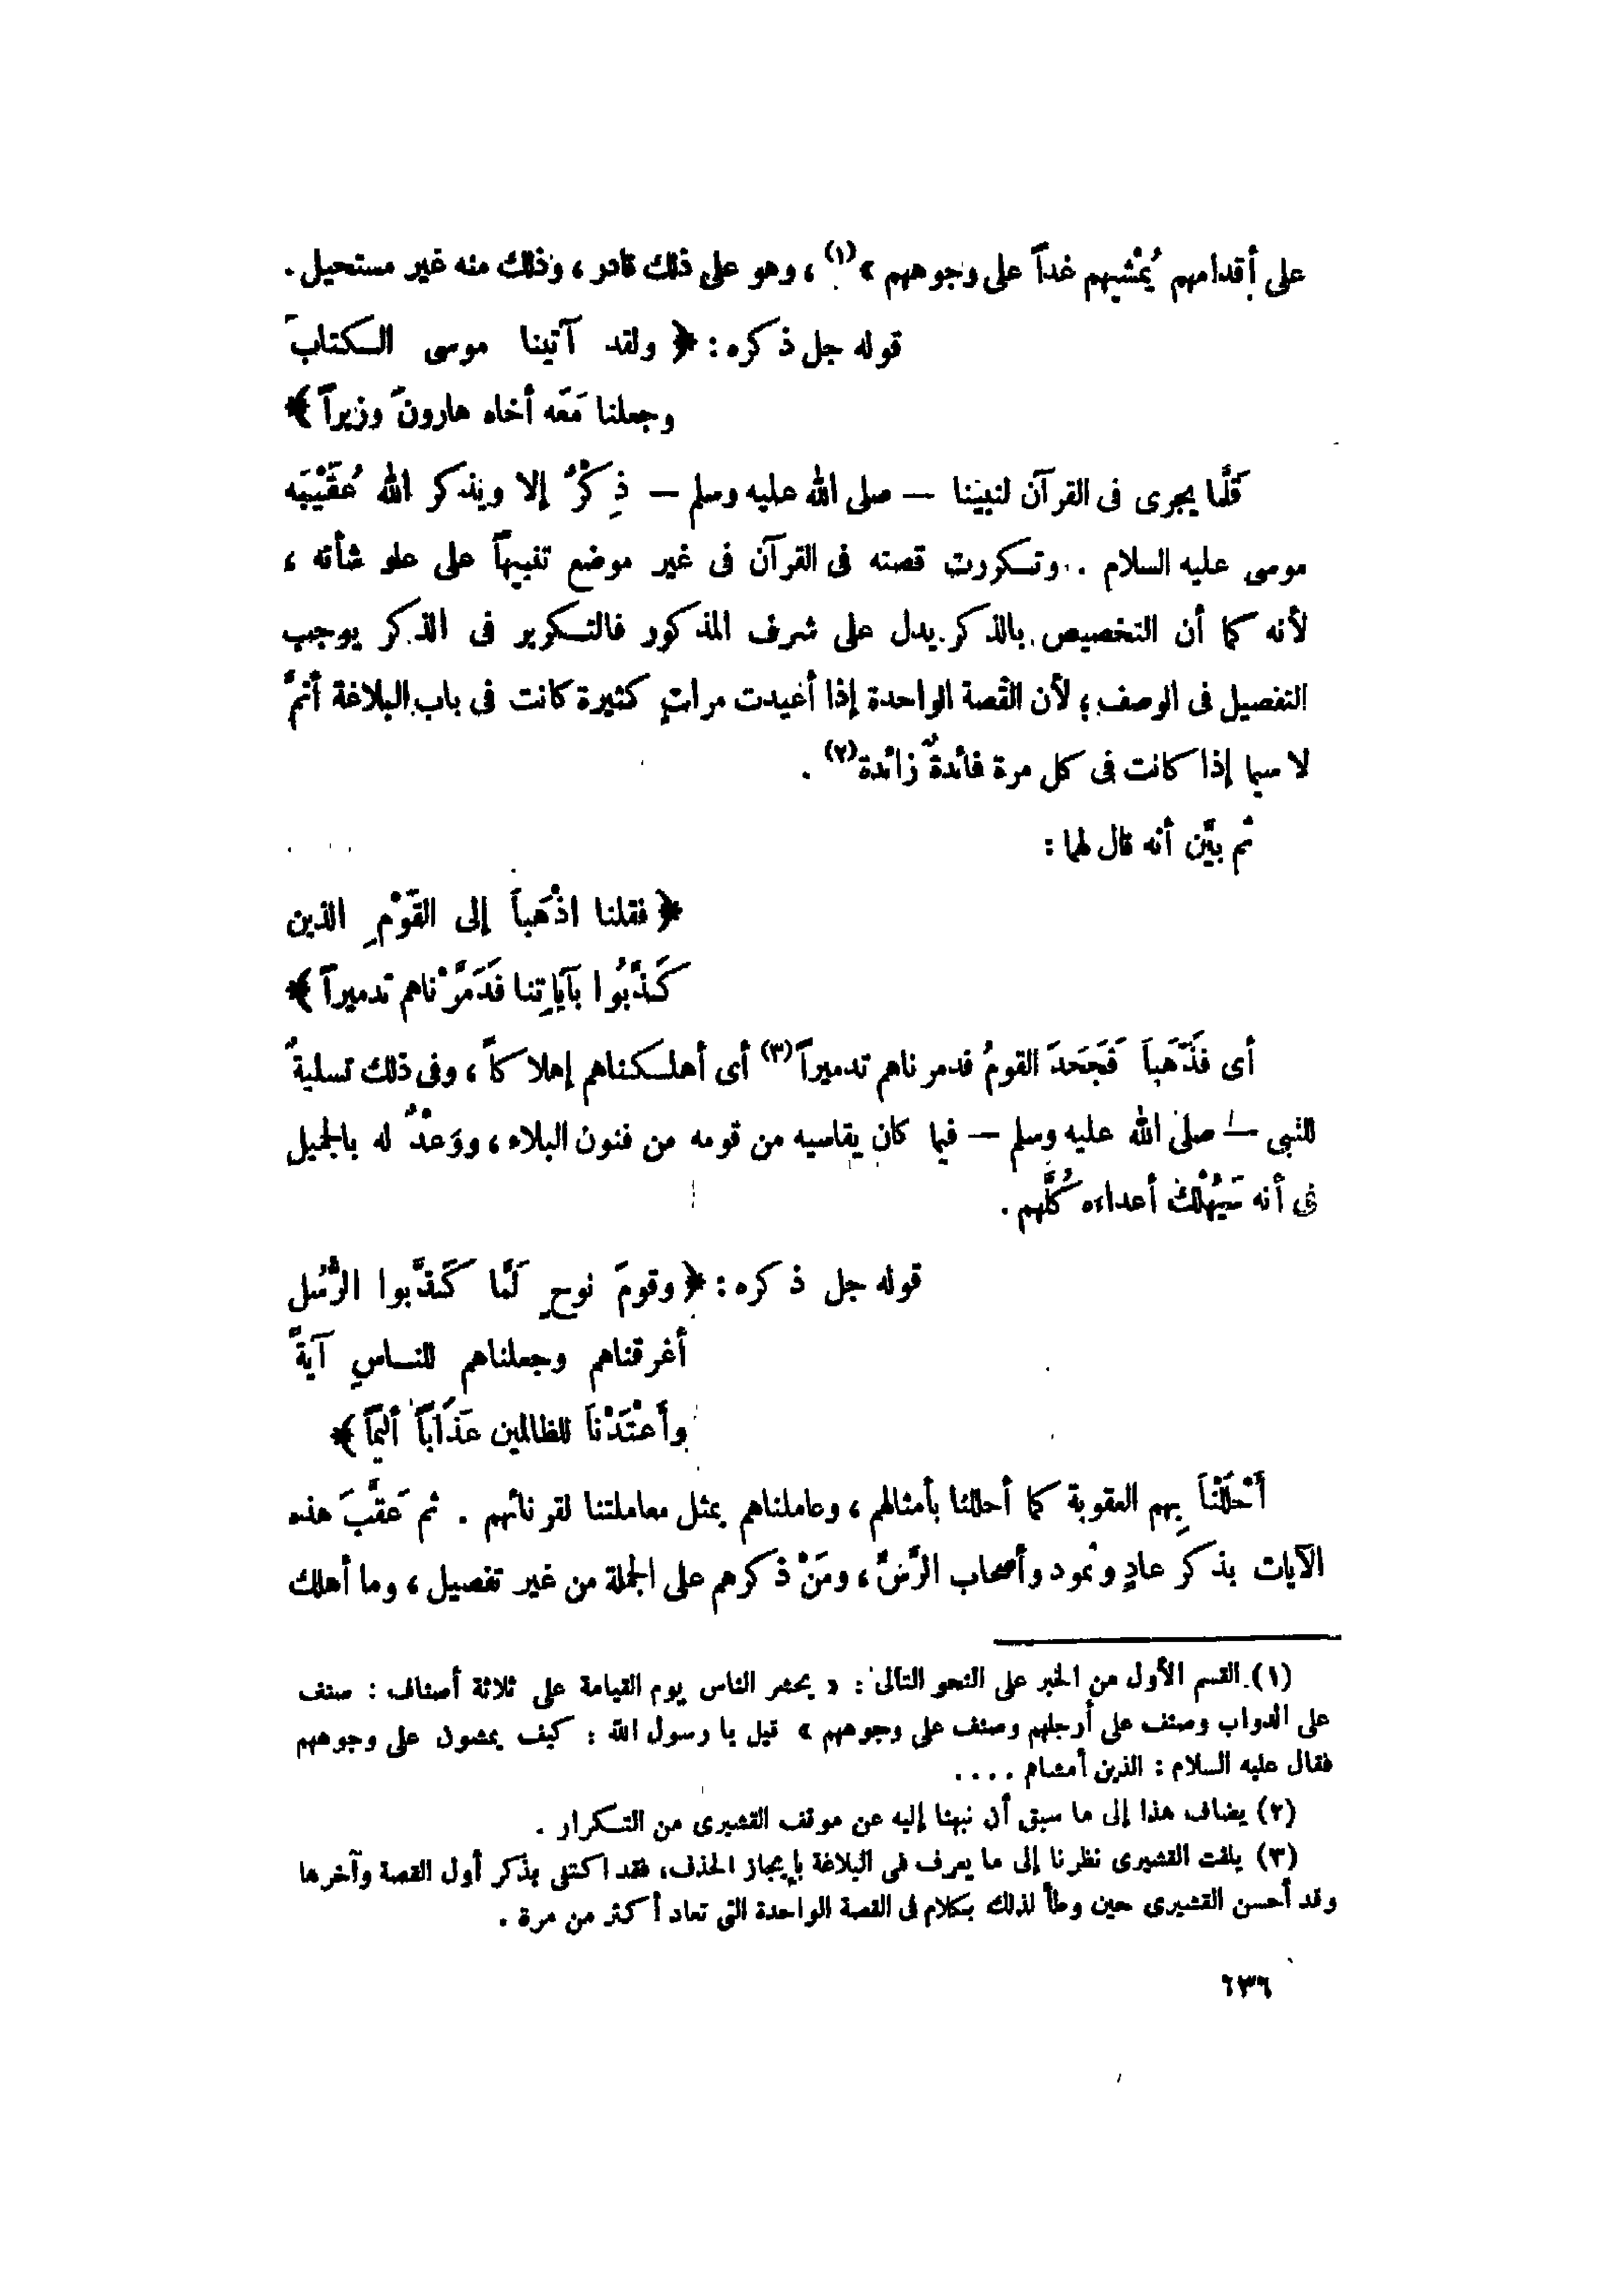 على أقدامهم يُمْشيهم غداً على وجوههم »(١) ، وهو على ذلك قادر ، وذلك منه غير مستحيل .
قوله جل ذكره : ﴿ ولقد آتينا موسى الكتابَ
وجعلنا مَعَه أخاه هارونَ وزيراً ﴾
قَلَّما يجرى فى القرآن لنبينا – صلى الله عليه وسلم – ذِكْرٌ إلا ويذكر الله عُقَيْبَه
موسى عليه السلام .. وتكررت قصته فى القرآن فى غير موضع تنبيهاً على علو شأنه ،
لأنه كما أن التخصيص بالذكر يدل على شرف المذكور فالتكرير فى الذكر يوجب
التفصيل فى الوصف ؛ لأن القصة الواحدة إذا أعيدت مراتٍ كثيرة كانت فى باب البلاغة أتمَّ
لا سيما إذا كانت فى كل مرة فائدةٌ زائدة(٢) .
ثم بيَّن أنه قال لهما :
﴿ فقلنا اذْهَبا إلى القَوْمِ الذين
كَذَّبُوا بآياتِنا فَدَمَّرْناهم تدميراً ﴾
أى فَذَهَبا فَجَحَدَ القومُ فدمرناهم تدميراً(٣) أى أهلكناهم إهلاكاً ، وفى ذلك تسليةٌ
للنبى – صلى الله عليه وسلم – فيما كان يقاسيه من قومه من فنون البلاء ، ووَعْدٌ له بالجميل
فى أنه سَيُهْلك أعداءه كُلَّهم .
قوله جل ذكره : ﴿ وقومَ نوحٍ لَمَّا كَذَّبوا الرُّسُل
أغرقناهم وجعلناهم للناسِ آيةً
وأَعْتَدْنا للظالمين عَذَاباً أليماً ﴾
أَحْلَلْنا بِهم العقوبة كما أحللنا بأمثالهم ، وعاملناهم بمثل معاملتنا لقرنائهم . ثم عَقَّبَ هذه
الآيات بذكر عادٍ وثمود وأصحاب الرَّسِّ ، ومَنْ ذكرهم على الجملة من غير تفصيل ، وما أهلك
(١) القسم الأول من الخبر على النحو التالى : « يحشر الناس يوم القيامة على ثلاثة أصناف : صنف
على الدواب وصنف على أرجلهم وصنف على وجوههم » قيل يا رسول الله : كيف يمشون على وجوههم
فقال عليه السلام : الذين أمشام ....
(٢) يضاف هذا إلى ما سبق أن نبهنا إليه عن موقف القشيرى من التكرار .
(٣) يلفت القشيرى نظرنا إلى ما يعرف فى البلاغة بإيجاز الحذف، فقد اكتفى بذكر أول القصة وآخرها
وقد أحسن القشيرى حين وطأ لذلك بكلام فى القصة الواحدة التى تعاد أكثر من مرة .
٦٣٦